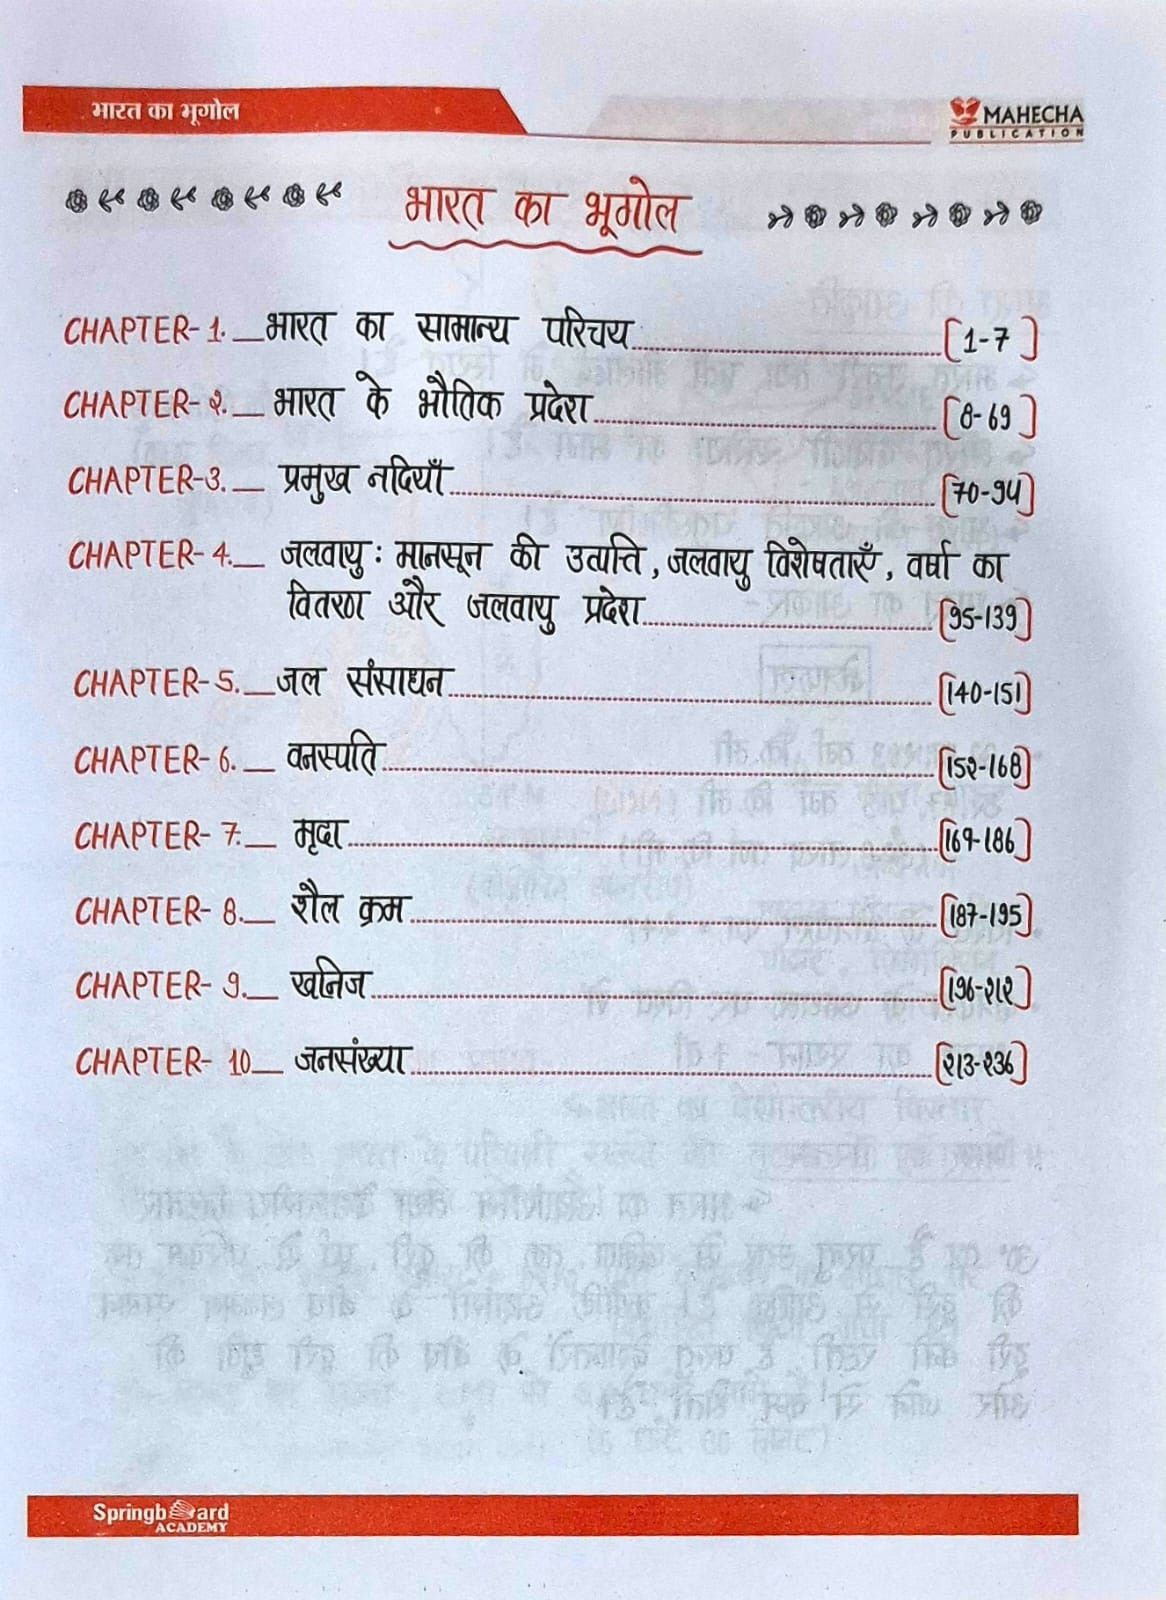 भारत का भूगोल
MAHECHA
PUBLICATION
भारत का भूगोल
CHAPTER- 1. भारत का सामान्य परिचय [1-7]
CHAPTER- 2. भारत के भौतिक प्रदेश [8-69]
CHAPTER-3. प्रमुख नदियाँ [70-94]
CHAPTER- 4. जलवायु : मानसून की उत्पत्ति, जलवायु विशेषताएँ, वर्षा का
वितरण और जलवायु प्रदेश [95-139]
CHAPTER- 5. जल संसाधन [140-151]
CHAPTER- 6. वनस्पति [152-168]
CHAPTER- 7. मृदा [169-186]
CHAPTER- 8. शैल क्रम [187-195]
CHAPTER- 9. खनिज [196-212]
CHAPTER- 10 जनसंख्या [213-236]
Springboard
ACADEMY